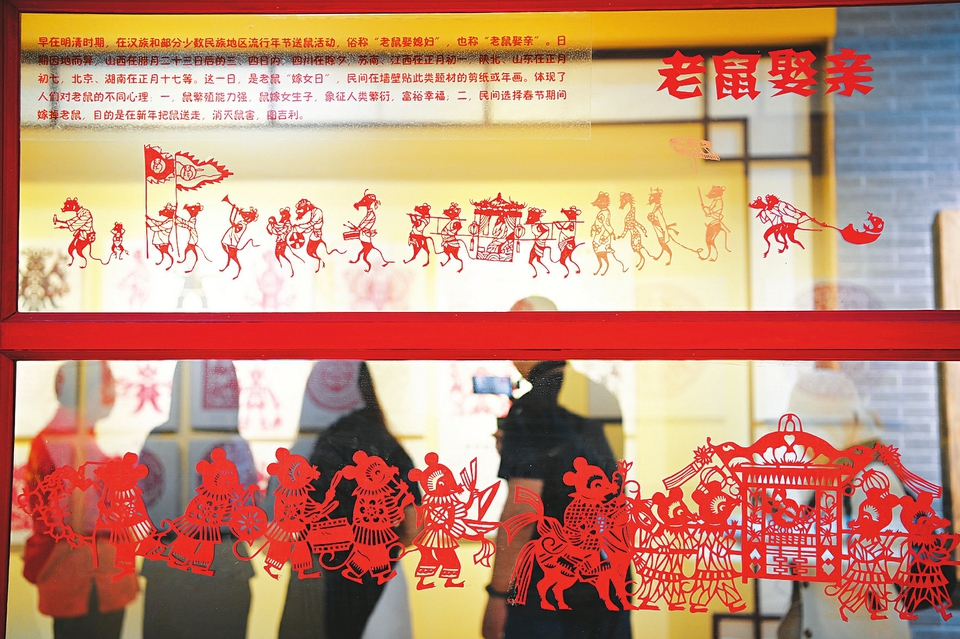 老鼠娶亲
早在明清时期，在汉族和部分少数民族地区流行年节送鼠活动，俗称“老鼠娶媳妇”，也称“老鼠娶亲”。日
期因地而异，山西在腊月二十三日后的三、四日内，四川在除夕，苏南、江西在正月初一，陕北、山东在正月
初七，北京、湖南在正月十七等。这一日，是老鼠“嫁女日”，民间在墙壁贴此类题材的剪纸或年画。体现了
人们对老鼠的不同心理：一、鼠繁殖能力强，鼠嫁女生子，象征人类繁衍，富裕幸福；二、民间选择春节期间
嫁掉老鼠，目的是在新年把鼠送走，消灭鼠害，图吉利。
囍